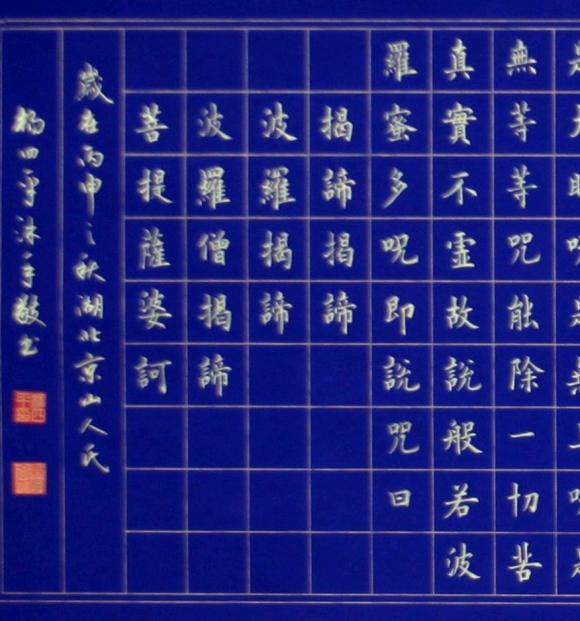 無等等咒能除一切苦
真實不虛故說般若波
羅蜜多呪即說咒曰
揭諦揭諦
波羅揭諦
波羅僧揭諦
菩提薩婆訶
歲在丙申之秋湖北京山人氏
楊四平沐手敬书